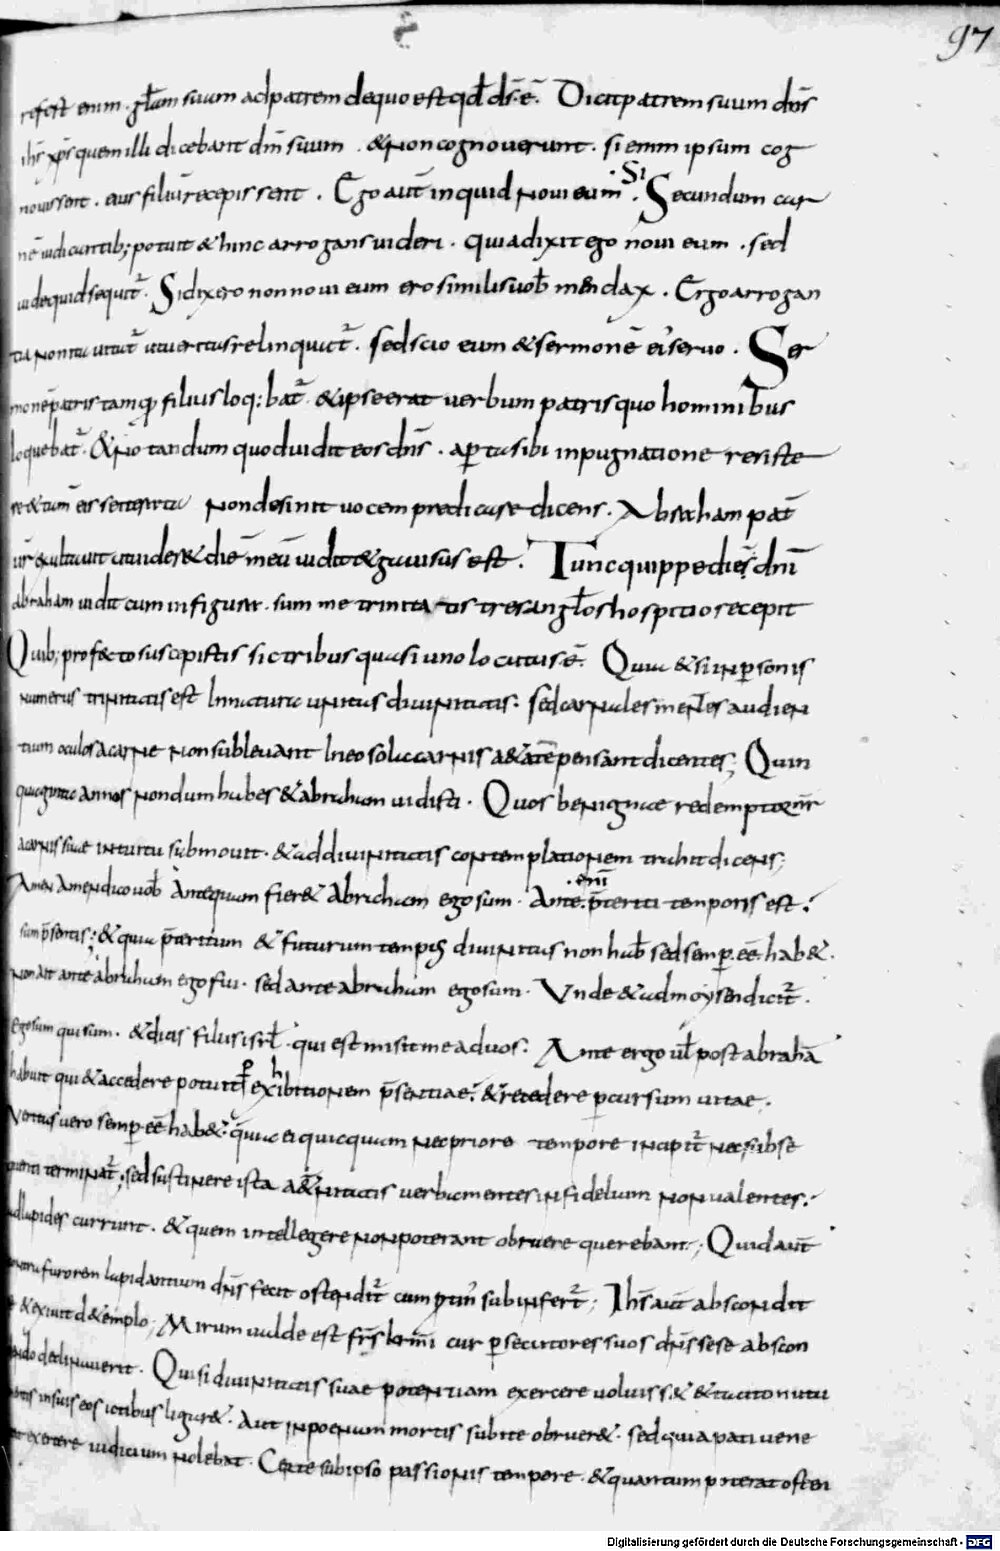 97
refert enim. gl̄am suum ad patrem de quo est qd̄ d̄s. ē. Dicit patrem suum dn̄s
ih̄s xp̄s quem illi dicebant dm̄ suum. & non cognoverunt. si enim ipsum cog
novissent. eius filiū recepissent. Ego aut̄ inquid novi eum. Si Secundum car
nē iudicantib; potuit & hinc arrogans videri. quia dixit ego novi eum. sed
vide quid sequit̄. Si dixero non novi eum ero similis vob̄ mendax. Ergo arrogan
tia non ita vitat̄ ut veritas relinquat̄. sed scio eum & sermonē ei' servo. Ser
monē patris tamq̄ filius loq:bat̄. & ipse erat verbum patris quo hominibus
loquebat̄. & nō tandum quod vidit eos dn̄s. apta sibi inpugnatione resiste
re & tam̄ eis non desinit vocem predicare dicens. Abraham pat̄
ur̄ exultavit ut videre& diē meū vidit & gavisus est. Tunc quippe diē dn̄i
abraham vidit cum in figura. summe trinitatis tres angl̄os hospitio recepit
Quib; profecto susceptis sic tribus quasi uno locutus. ē. Quia & si in personis
numerus trinitatis est In natura unitas divinitatis. sed carnales mentes audien
tium oculos a carne non sublevant In eo sola carnis a&atē pensant dicentes; Quin
quaginta annos nondum habes & abraham vidisti. Quos benigne redemptor nr̄
a carnis suae intuitu submovit. & ad divinitatis contemplationem trahit dicens;
Amen Amen dico vob̄ Antequam fiere& Abraham ego sum. Ante. enī p̄teriti temporis est.
sum p̄sentis; & quia p̄teritum & futurum tempus divinitas non hab& sed semper eē hab&.
non ait ante abraham ego fui. sed ante abraham ego sum. Unde & ad moysen dicit̄.
Ego sum qui sum. & dicis filiis isrl̄. qui est misit me ad vos. Ante ergo vel̄ post abrahā
habuit qui & accedere potuit p exhibitionem p̄sentiae. & recedere p cursum vitae.
Veritas vero semp eē hab&. quia ei quicquam nec priore tempore incipit̄ nec subse
quenti terminat̄; sed sustinere ista a&ernitatis verba mentes infidelium non valentes.
ad lapides currunt. & quem intellegere non poterant obruere querebant; Quid aut̄
contra furorem lapidantium dn̄s fecit ostendit̄ cum ptin' subinfert̄; Ih̄s aut̄ abscondit
se & exivit d& templo; Mirum valde est fr̄s krm̄i cur persecutores suos dn̄s sese abscon
dendo declinaverit. Qui si divinitatis suae potentiam exercere voluiss& & tacito nutu
mentis in suis eos ictibus ligar&. Aut in poenam mortis subite obruer&. sed quia pati vene
rat exercere iudicium nolebat. Certe sub ipso passionis tempore. & quantum poterat osten
Digitalisierung gefördert durch die Deutsche Forschungsgemeinschaft - DFG